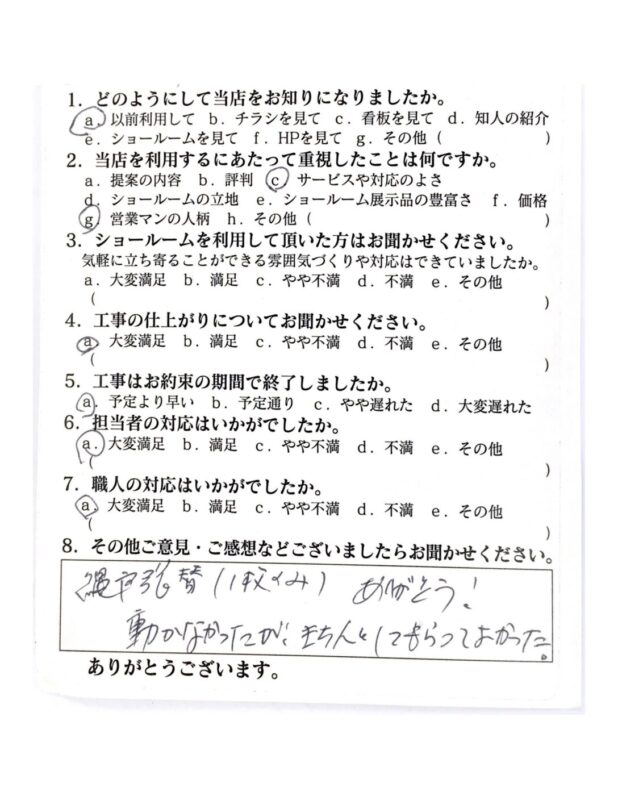 1．どのようにして当店をお知りになりましたか。
a．以前利用して b．チラシを見て c．看板を見て d．知人の紹介
e．ショールームを見て f．HPを見て g．その他（ ）
2．当店を利用するにあたって重視したことは何ですか。
a．提案の内容 b．評判 c サービスや対応のよさ
d．ショールームの立地 e．ショールーム展示品の豊富さ f．価格
g 営業マンの人柄 h．その他（ ）
3．ショールームを利用して頂いた方はお聞かせください。
気軽に立ち寄ることができる雰囲気づくりや対応はできていましたか。
a．大変満足 b．満足 c．やや不満 d．不満 e．その他
（ ）
4．工事の仕上がりについてお聞かせください。
a 大変満足 b．満足 c．やや不満 d．不満 e．その他
（ ）
5．工事はお約束の期間で終了しましたか。
a．予定より早い b．予定通り c．やや遅れた d．大変遅れた
6．担当者の対応はいかがでしたか。
a．大変満足 b．満足 c．やや不満 d．不満 e．その他
（ ）
7．職人の対応はいかがでしたか。
a．大変満足 b．満足 c．やや不満 d．不満 e．その他
（ ）
8．その他ご意見・ご感想などございましたらお聞かせください。
網戸張替（1枚のみ） ありがとう！
動かなかったが、きちんとしてもらってよかった。
ありがとうございます。